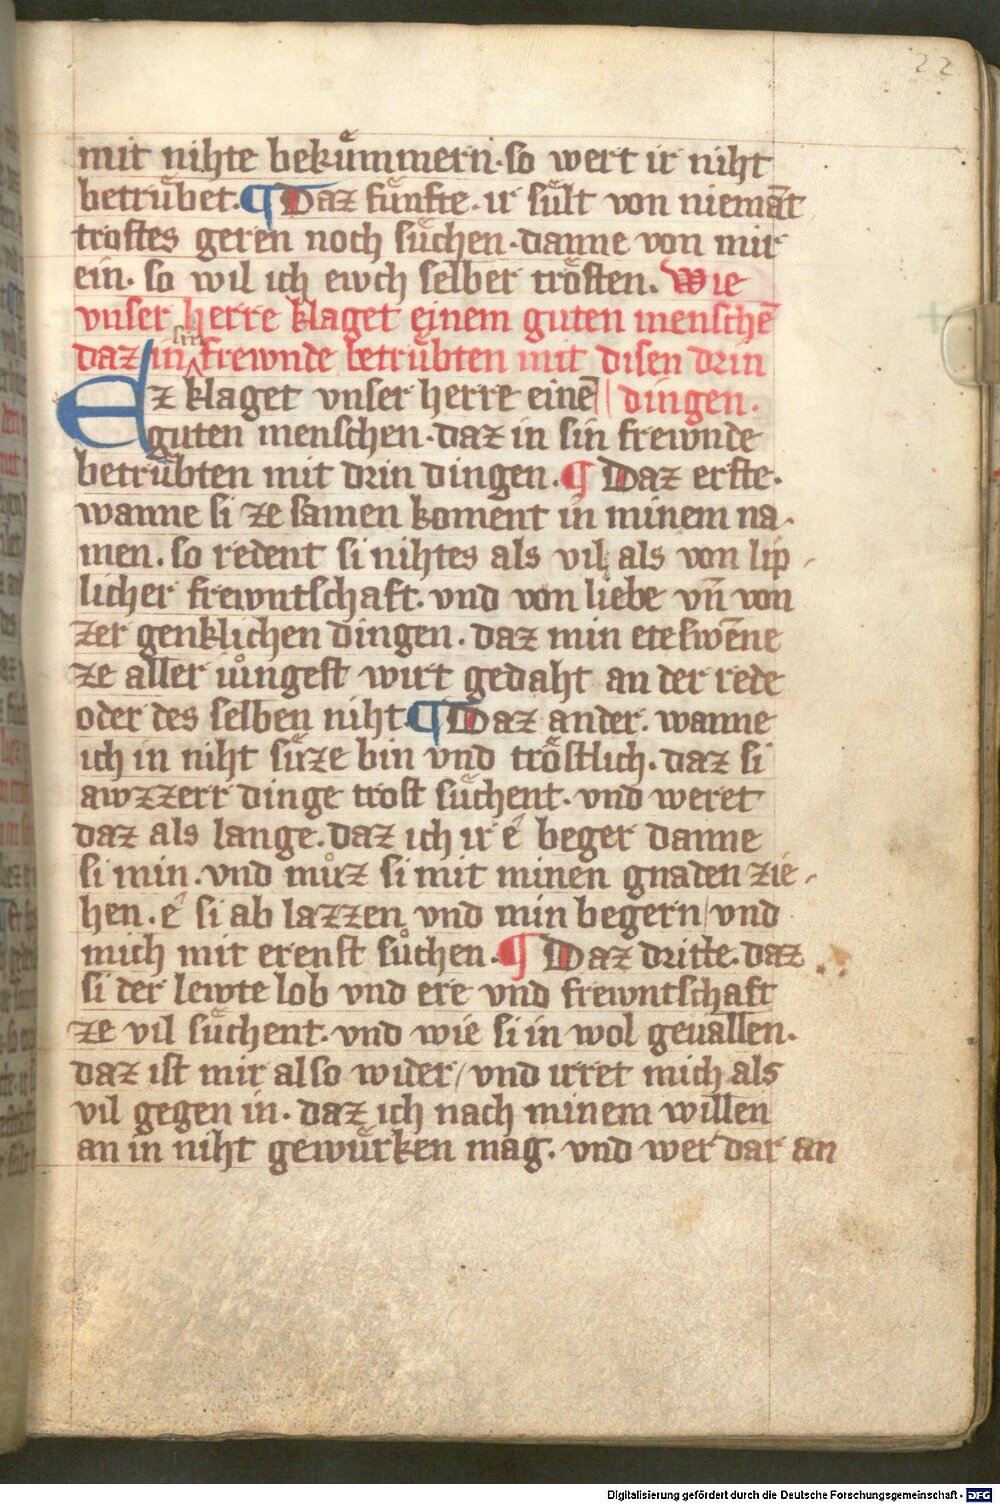 22
mit nihte bekuͤmmern· so wert ir niht
betruͤbet. ¶ Daz fuͤnfte· ir suͤlt von niemāt
trostes geren noch suͤchen· danne von mir
ein· so wil ich ewch selber troͤsten. Wie
vnser herre klaget einem guten menschē
daz in sin frewnde betruͤbten mit disen drin
Ez klaget vnser herre einē || dingen.
guten menschen· daz in sin frewnde
betruͤbten mit drin dingen. ¶ Daz erste·
wanne si ze samen koment in minem na-
men. so redent si nihtes als vil als von lip-
licher frewntschaft. vnd von liebe vn̄ von
zer genklichen dingen. daz min eteswēne
ze aller iuͦngest wirt gedaht an der rede
oder des selben niht. ¶ Daz ander. wanne
ich in niht suͤze bin vnd troͤstlich. daz si
awzzerr dinge trost suͤchent. vnd weret
daz als lange. daz ich ir ê beger danne
si min. vnd muͦz si mit minen gnaden zie-
hen. ê si ab lazzen vnd min begern / vnd
mich mit erenst suͦchen. ¶ Daz dritte· daz
si der lewte lob vnd ere vnd frewntschaft
ze vil suͤchent· vnd wie si in wol geuallen.
daz ist mir also wider / vnd irret mich als
vil gegen in. daz ich nach minem willen
an in niht gewuͤrken mag. vnd wer dar an
Digitalisierung gefördert durch die Deutsche Forschungsgemeinschaft - DFG